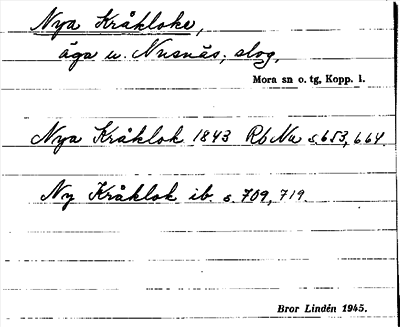 Nya Kråkloke,
äga u. Nusnäs, skog,
Mora sn o. tg, Kopp. l.
Nya Kråklok 1843 Rb Na s. 653, 664.
Ny Kråklok ib. s. 709, 719.
Bror Lindén 1945.